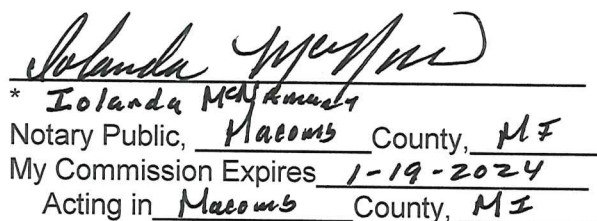 Iolanda
* Iolanda McNamara
Notary Public, Macomb County, MI
My Commission Expires 1-19-2024
Acting in Macomb County, MI